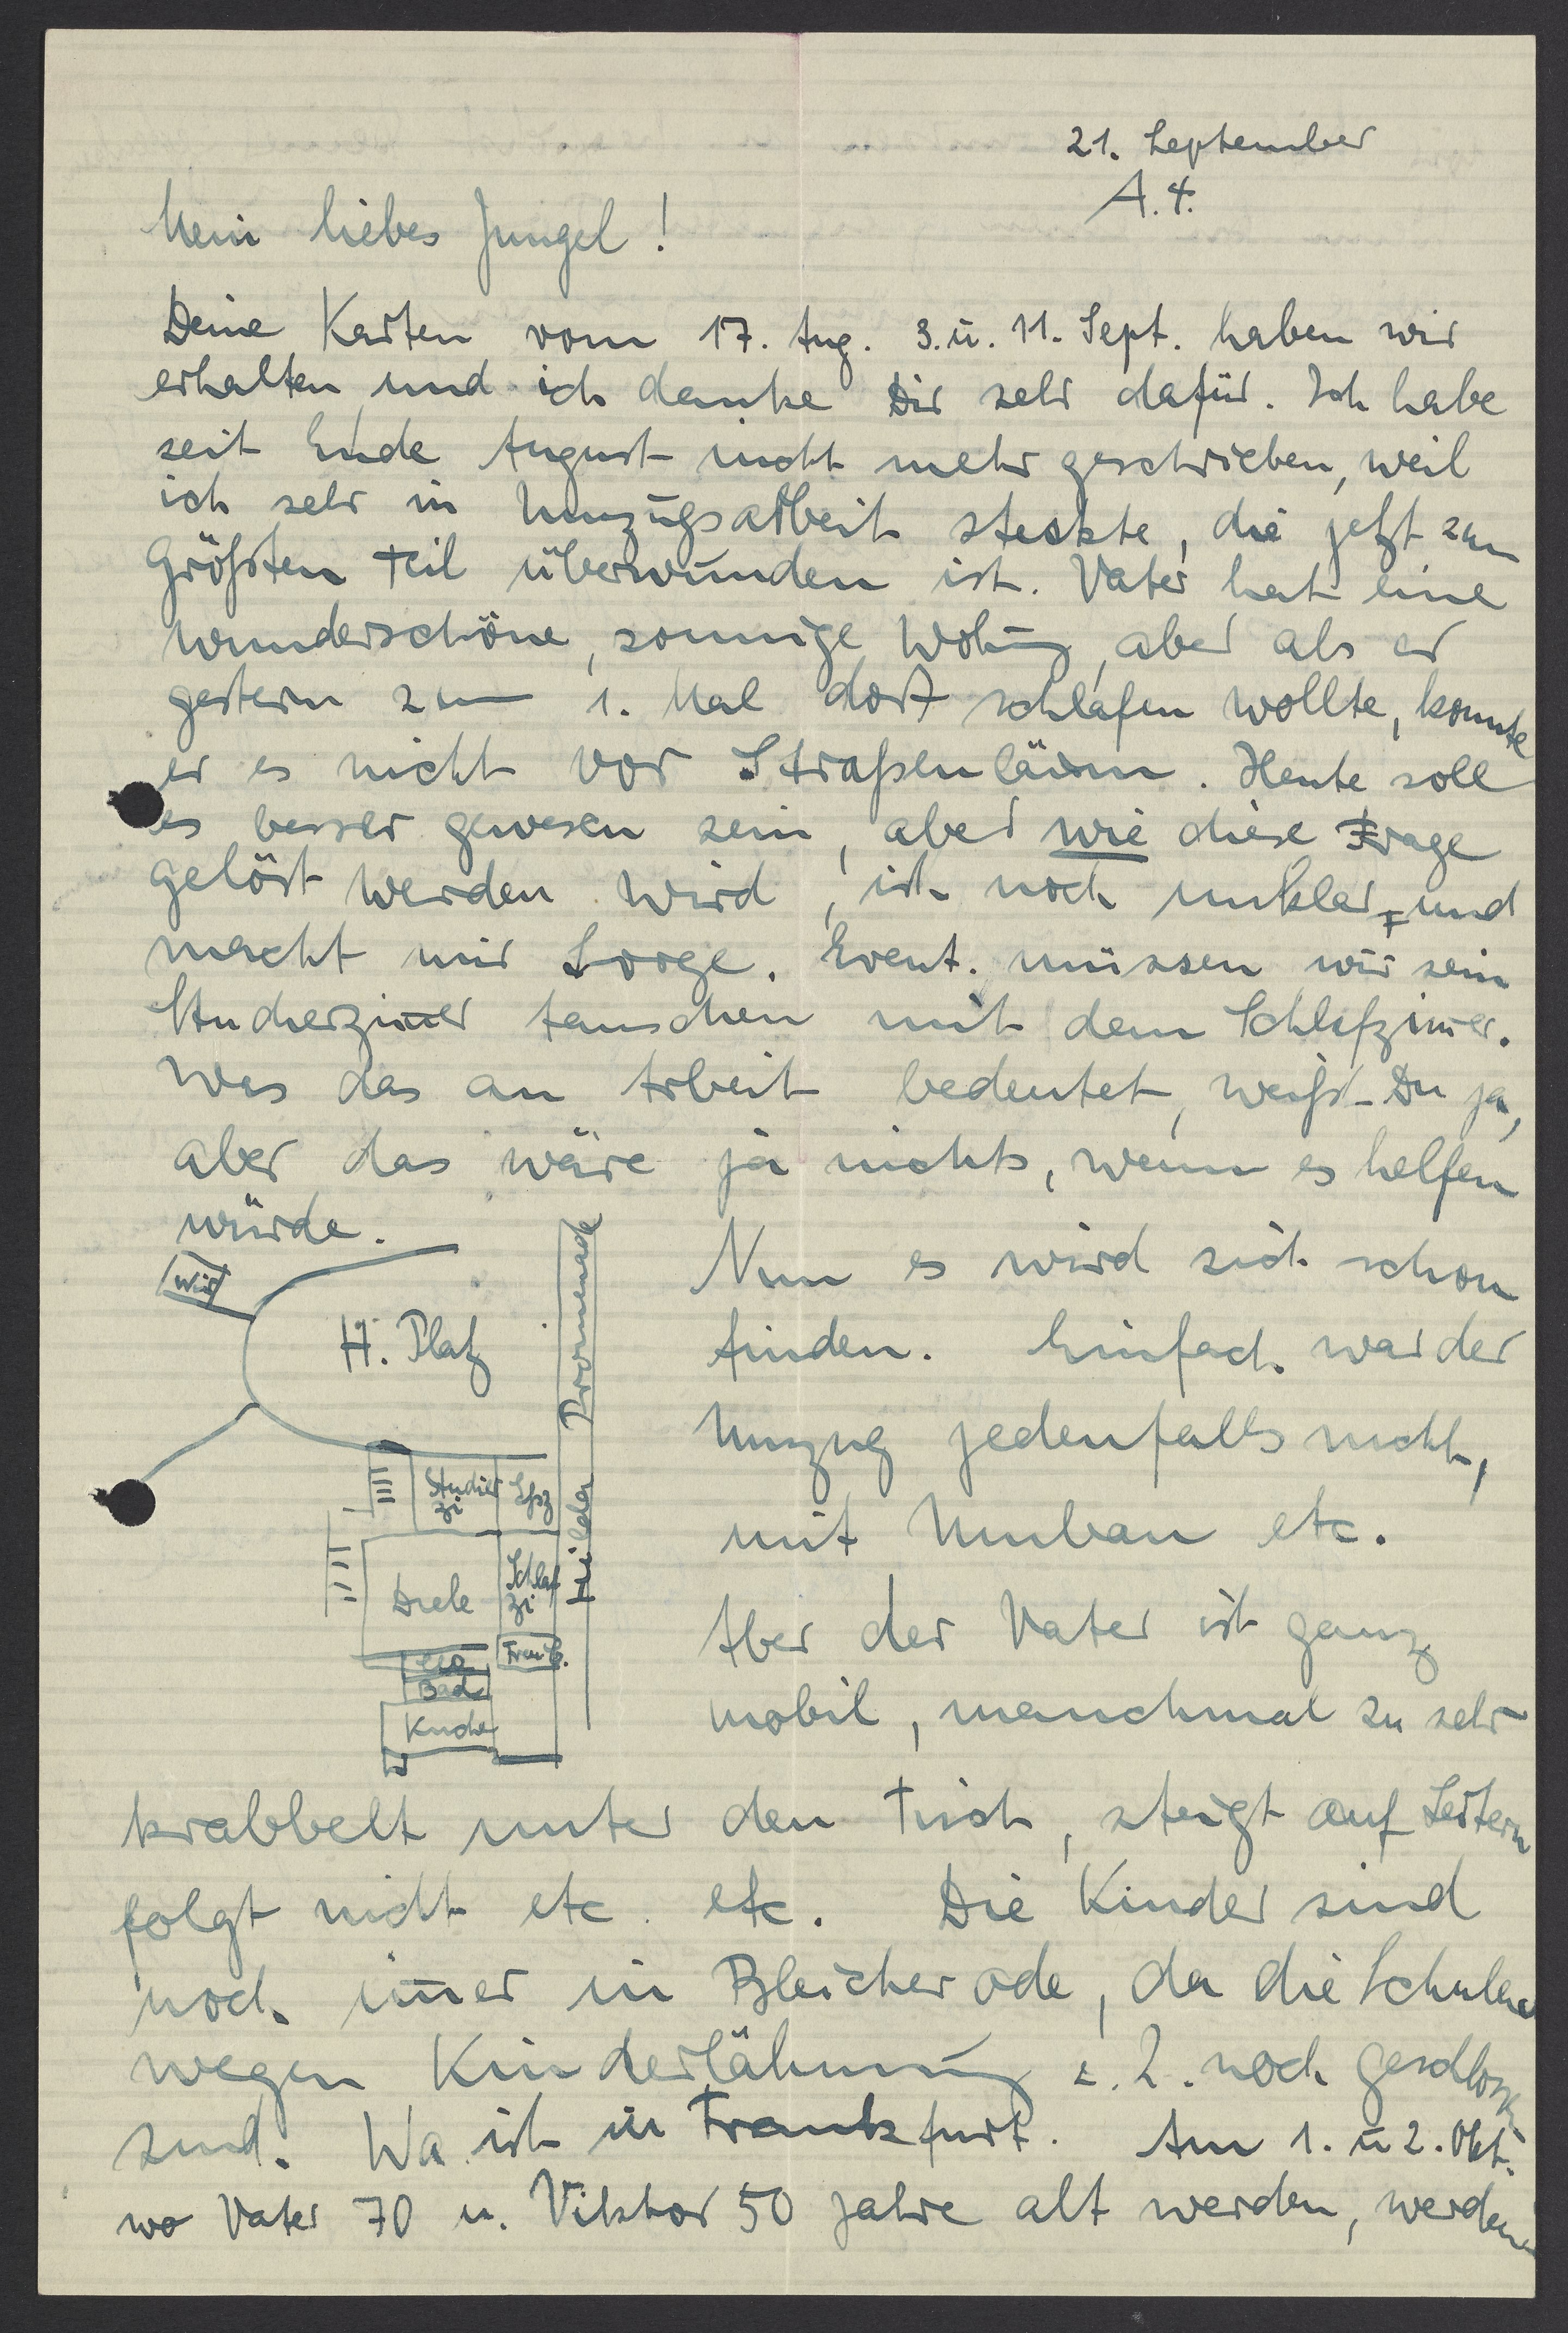 21. September
A. 4.
Mein liebes Jungel!
Deine Karten vom 17. Aug. 3. u. 11. Sept. haben wir
erhalten und ich danke Dir sehr dafür. Ich habe
seit Ende August nicht mehr geschrieben, weil
ich sehr in Umzugsarbeit steckte, die jetzt zum
größten Teil überwunden ist. Vater hat eine
wunderschöne, sonnige Wohng, aber als er
gestern zum 1. Mal dort schlafen wollte, konnte
er es nicht vor Straßenlärm. Heute soll
es besser gewesen sein, aber wie diese Frage
gelöst werden wird, ist noch unklar und
macht mir Sorge. Event. müssen wir sein
Studierzim̅er tauschen mit dem Schlafzim̅er.
Was das an Arbeit bedeutet, weißt Du ja,
aber das wäre ja nichts, wenn es helfen
würde.
Wir
H. Platz
Hilda Promenade
Studier
zi
Essz
Diele
Schlaf
zi
Frau C.
Bad
Küche
Nun es wird sich schon
finden. Einfach war der
Umzug jedenfalls nicht,
mit Umbau etc.
Aber der Vater ist ganz
mobil, manchmal zu sehr
krabbelt unter den Tisch, steigt auf Leitern
folgt nicht etc. etc. Die Kinder sind
noch im̅er in Bleicherode, da die Schulen
wegen Kinderlähmung z. Z. noch geschlossen
sind. Wa ist in Frankfurt. Am 1. u 2. Okt.
wo Vater 70 u. Viktor 50 Jahre alt werden, werden